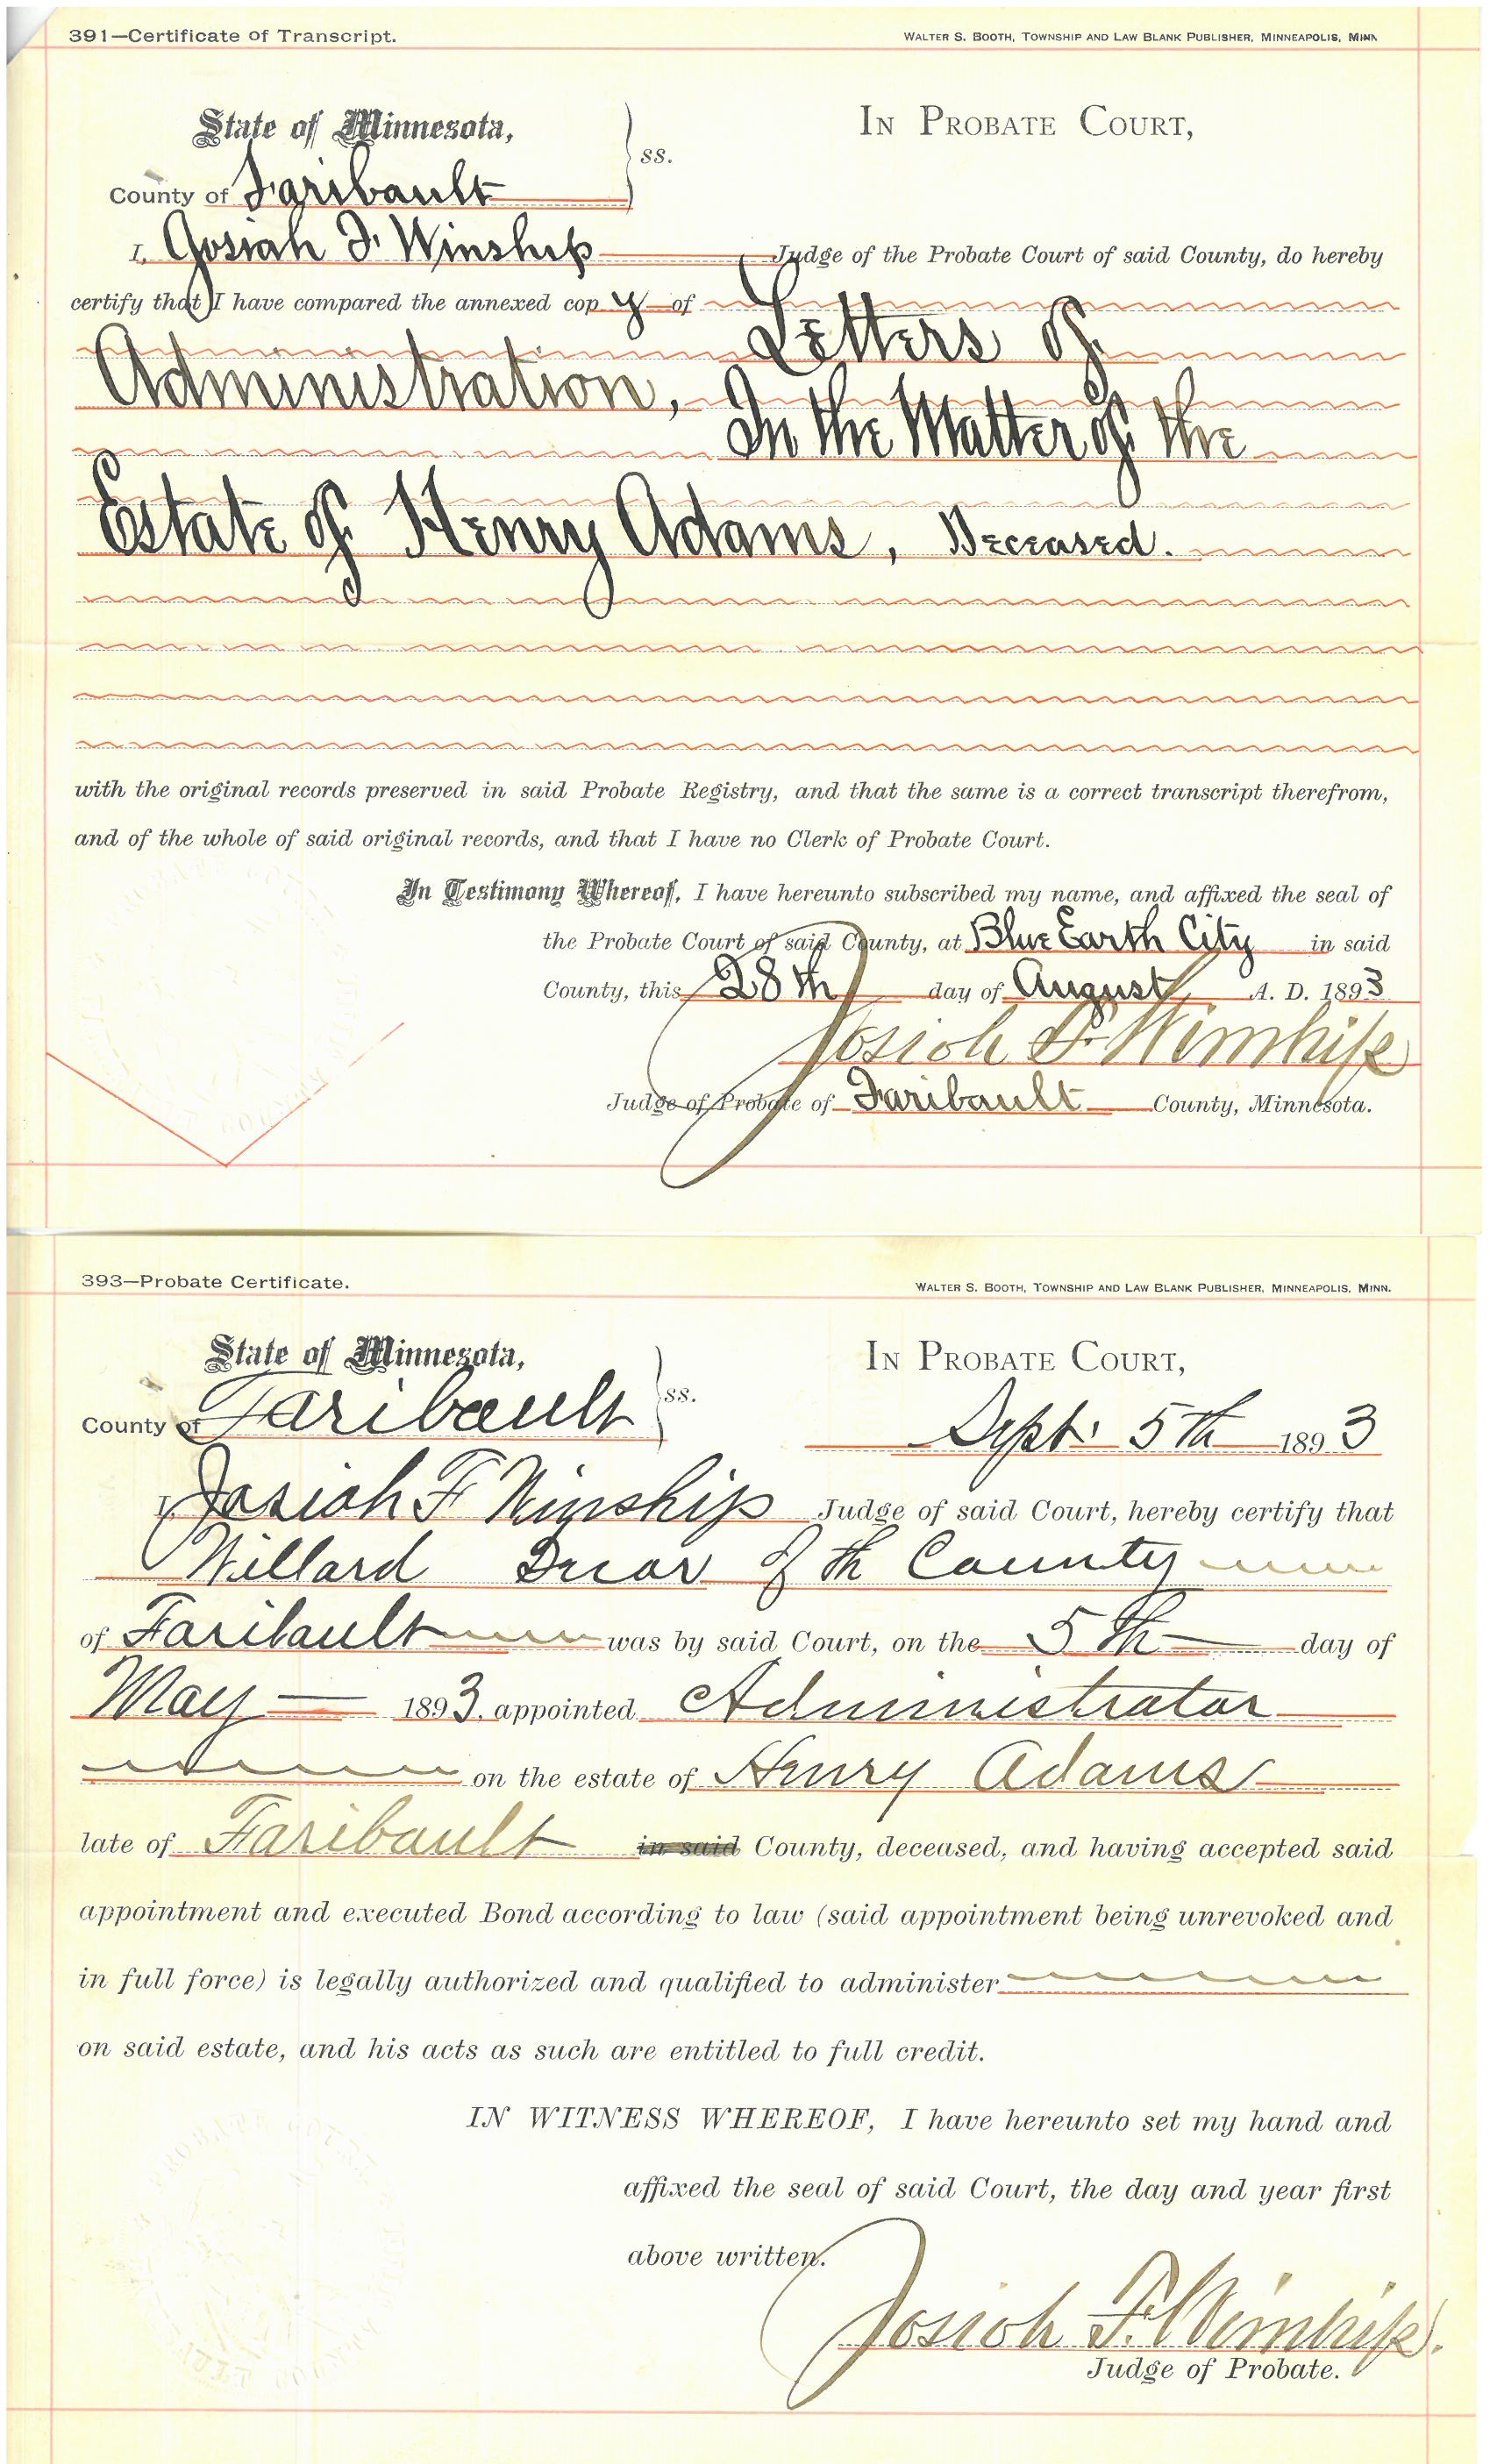 391—Certificate of Transcript. WALTER S. BOOTH, TOWNSHIP AND LAW BLANK PUBLISHER, MINNEAPOLIS, MINN
State of Minnesota, IN PROBATE COURT,
ss.
County of Faribault
I, Josiah F. Winship Judge of the Probate Court of said County, do hereby
certify that I have compared the annexed copy of
Letters of
Administration,
In the Matter of the
Estate of Henry Adams, Deceased.
with the original records preserved in said Probate Registry, and that the same is a correct transcript therefrom,
and of the whole of said original records, and that I have no Clerk of Probate Court.
In Testimony Whereof, I have hereunto subscribed my name, and affixed the seal of
the Probate Court of said County, at Blue Earth City in said
County, this 28th day of August, A. D. 1893
Josiah F. Winship
Judge of Probate of Faribault County, Minnesota.
393—Probate Certificate. WALTER S. BOOTH, TOWNSHIP AND LAW BLANK PUBLISHER, MINNEAPOLIS, MINN.
State of Minnesota, IN PROBATE COURT,
ss.
County of Faribault
Sept. 5th 1893
I, Josiah F Winship Judge of said Court, hereby certify that
Willard of th County
of Faribault was by said Court, on the 5th day of
May 1893, appointed Administrator
on the estate of Henry Adams
late of Faribault in said County, deceased, and having accepted said
appointment and executed Bond according to law (said appointment being unrevoked and
in full force) is legally authorized and qualified to administer
on said estate, and his acts as such are entitled to full credit.
IN WITNESS WHEREOF, I have hereunto set my hand and
affixed the seal of said Court, the day and year first
above written.
Josiah F. Winship.
Judge of Probate.